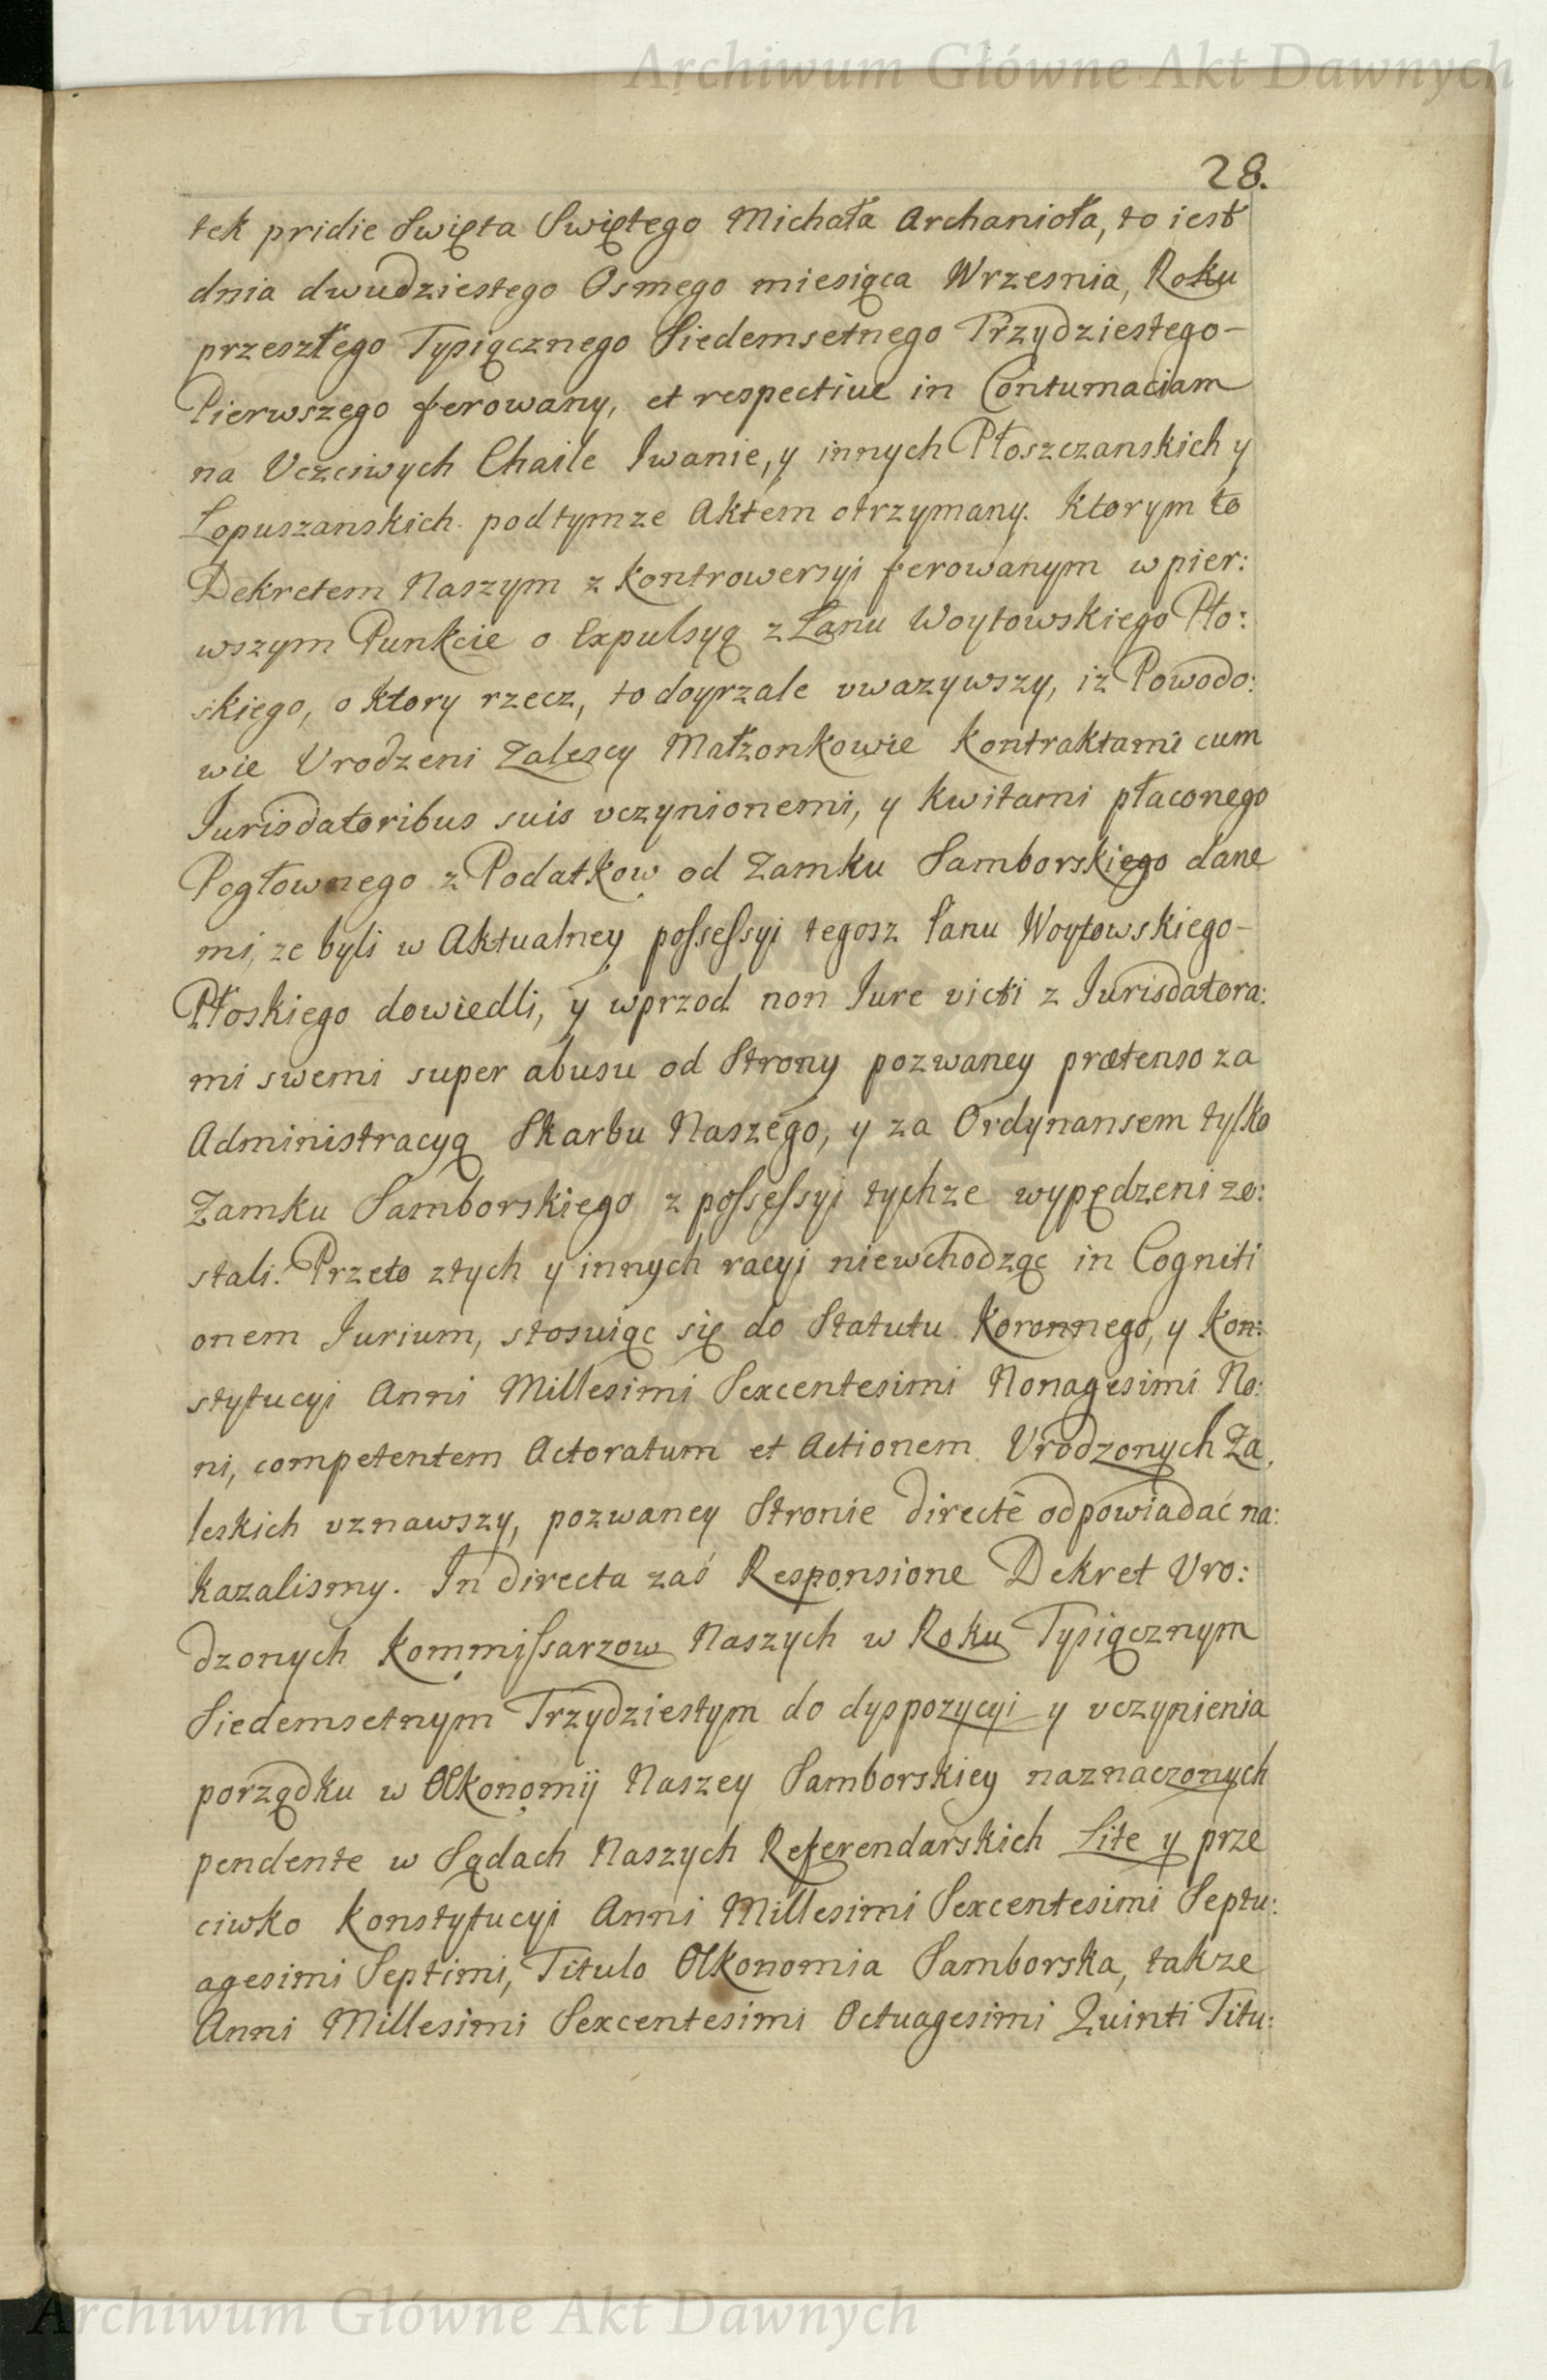 Archiwum Główne Akt Dawnych
28.
tek pridie Swięta Swiętego Michała Archanioła, to iest
dnia dwudziestego Osmego miesiąca Wrzesnia, Roku
przeszłego Tysiącznego Siedemsetnego Trzydziestego-
Pierwszego ferowany, et respectiue in Contumaciam
na Vczciwych Chaile Iwanie, y innych Płoszczanskich y
Łopuszanskich podtymze Aktem otrzymany. Ktorym to
Dekretem Naszym z Kontrowersyi ferowanym w pier:
wszym Punkcie o Expulsyą z Łanu Woytowskiego Pło:
skiego, o ktory rzecz, to doyrzale vwazywszy, iż Powodo:
wie Vrodzeni Zalescy Małzonkowie Kontraktami cum
Jurisdatoribus suis vczynionemi, y Kwitami płaconego
Pogłownego z Podatkow od Zamku Samborskiego dane
mi, ze byli w Aktualney possessyi tegosz Łanu Woytowskiego-
Płoskiego dowiedli, y wprzod non Jure victi z Jurisdatora:
mi swemi super abusu od Strony pozwaney prætenso za
Administracyą Skarbu Naszego, y za Ordynansem tylko
Zamku Samborskiego z possessyi tychze wypędzeni zo:
stali. Przeto z tych y innych racyi niewchodząc in Cogniti
onem Jurium, stosuiąc się do Statutu Koronnego, y Kon:
stytucyi Anni Millesimi Sexcentesimi Nonagesimi No:
ni, competentem Actoratum et Actionem Vrodzonych Za,
leskich vznawszy, pozwaney Stronie directè odpowiadać na:
kazalismy. In directa zaś Responsione Dekret Vro:
dzonych Kommissarzow Naszych w Roku Tysiącznym
Siedemsetnym Trzydziestym do dyspozycyi y vczynienia
porządku w Œkonomij Naszey Samborskiey naznaczonych
pendente w Sądach Naszych Referendarskich Lite y prze
ciwko Konstytucyi Anni Millesimi Sexcentesimi Septu:
agesimi Septimi, Titulo Œkonomia Samborska, takze
Anni Millesimi Sexcentesimi Octuagesimi Quinti Titu:
Archiwum Główne Akt Dawnych